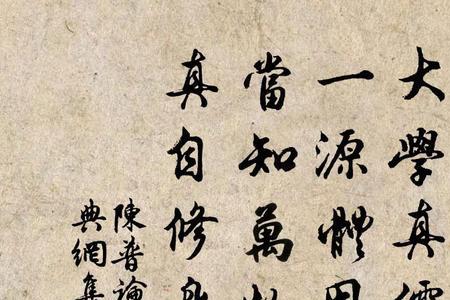 大學真儒
一源體用
當知萬
真自修身
陳普論
典網集